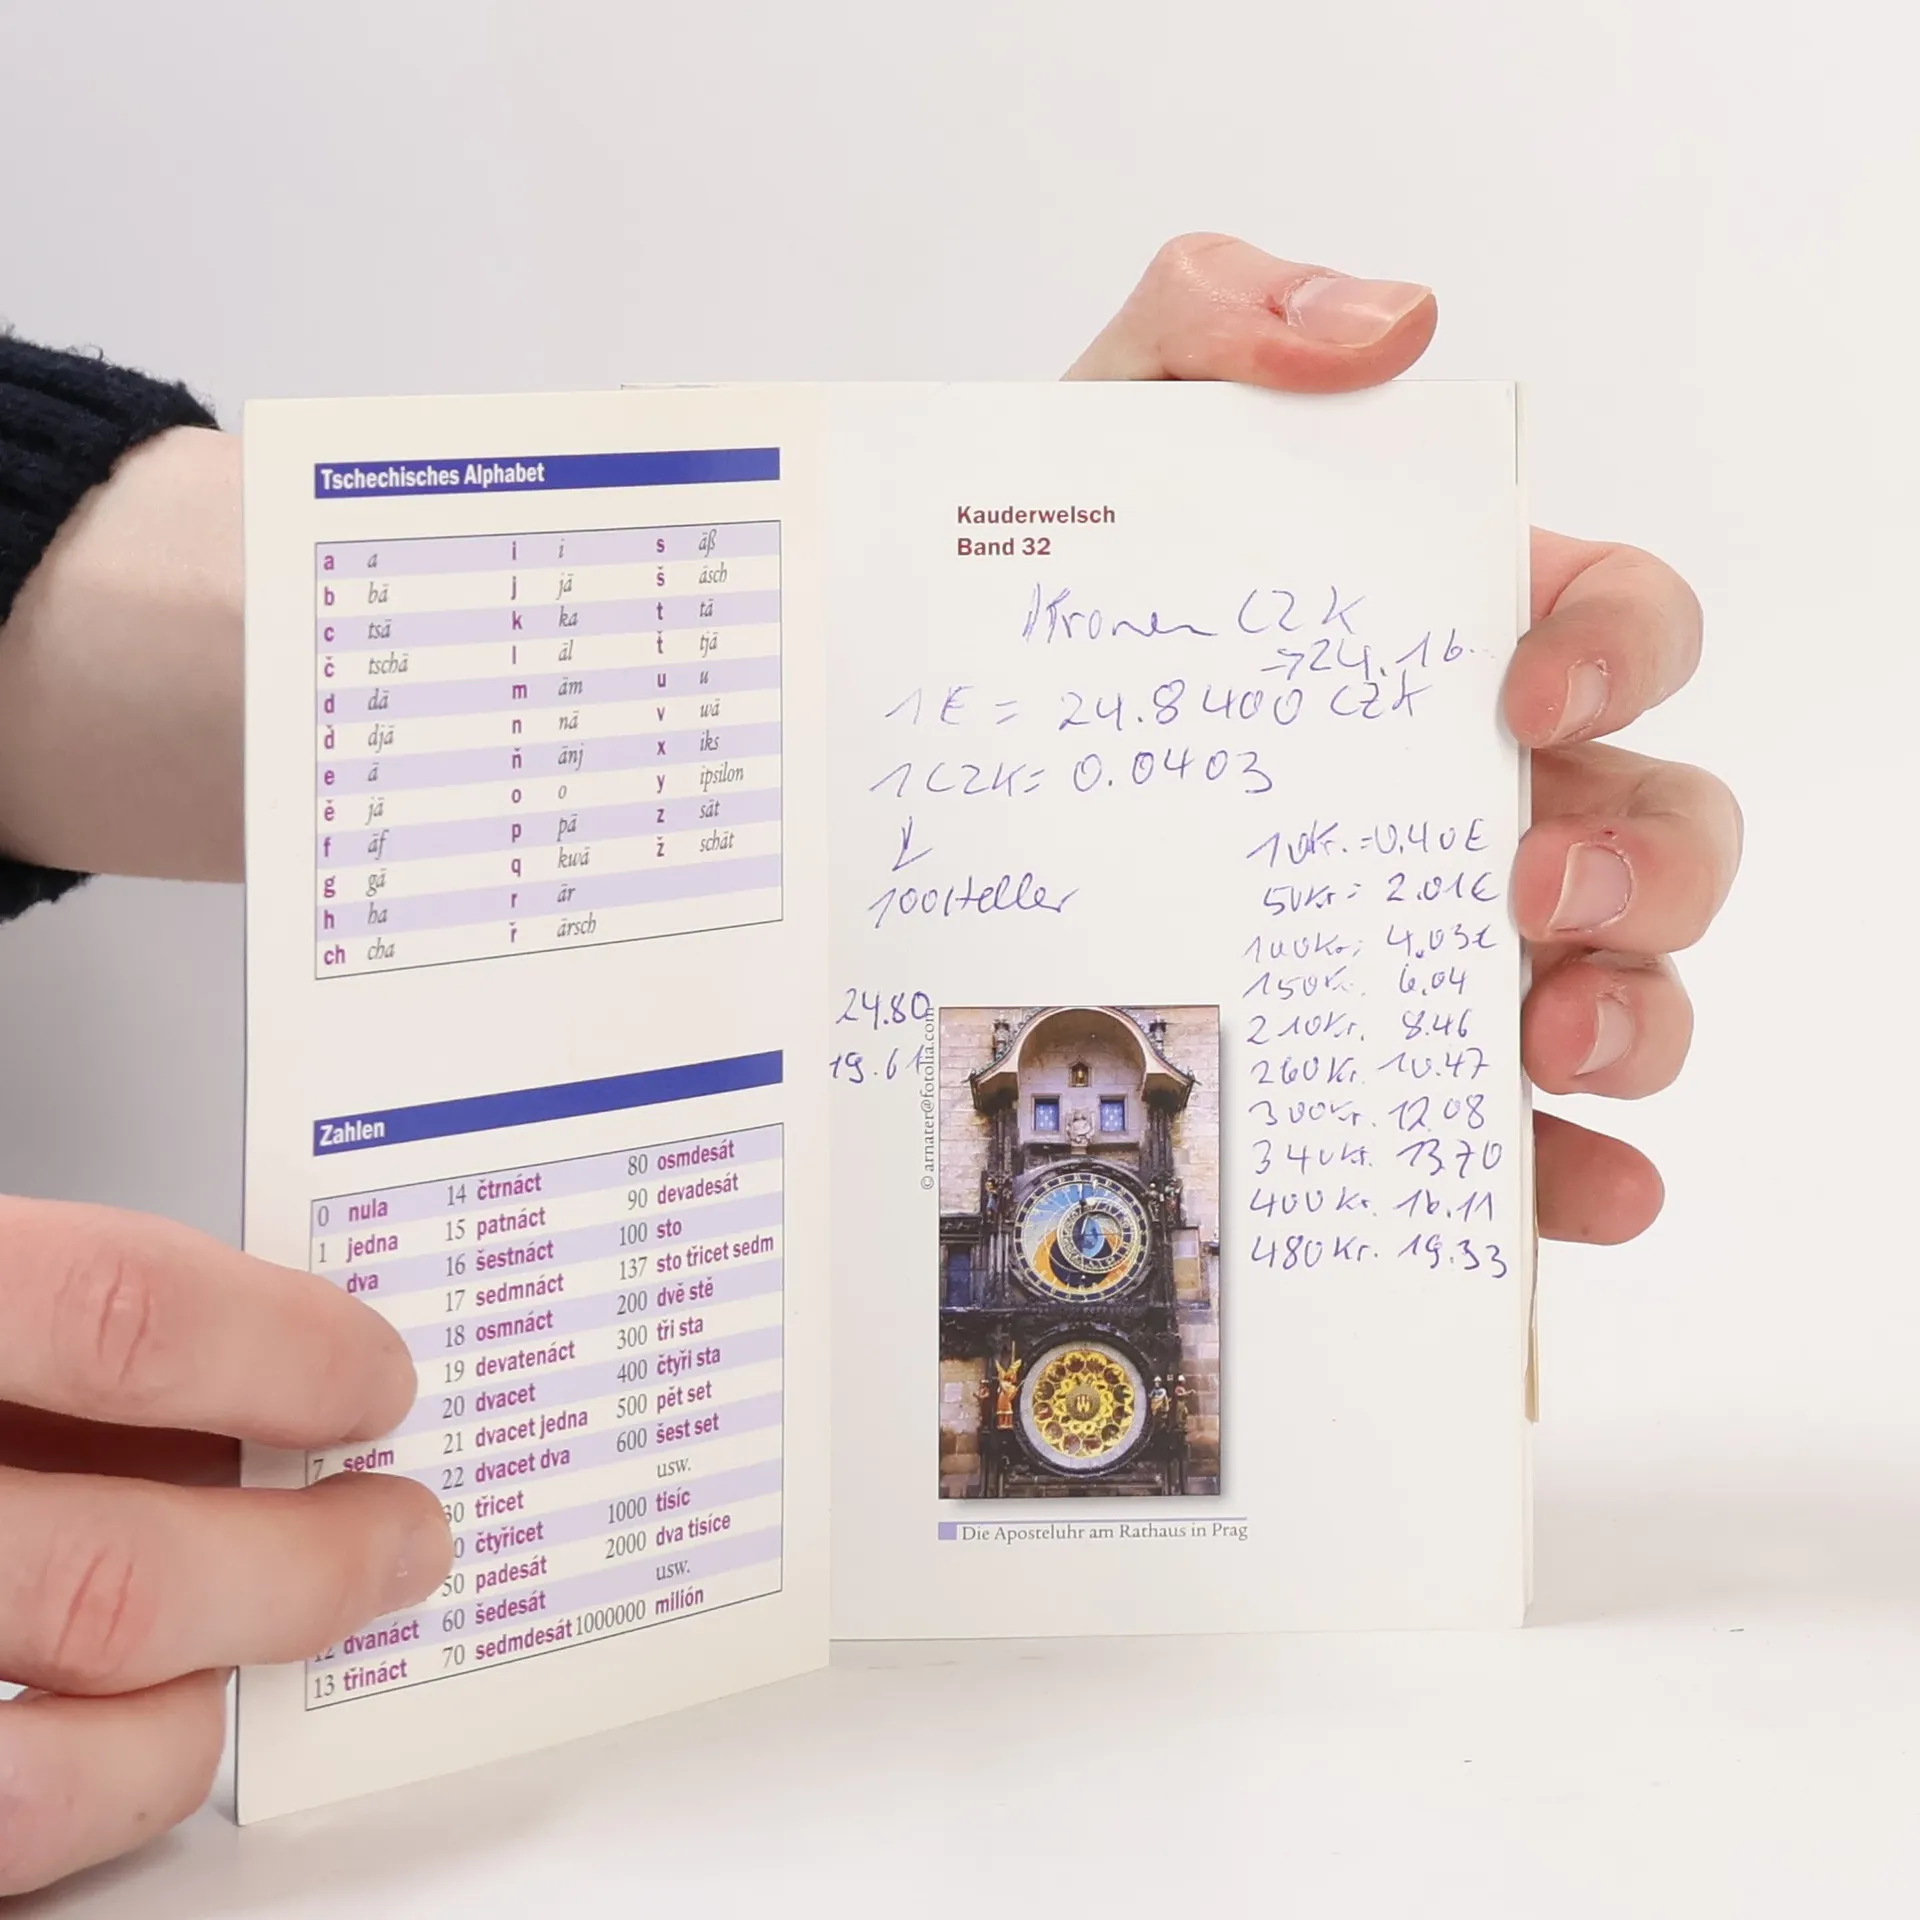 Tschechisches Alphabet
a a i i s äß
b bä j jä š äsch
c tsä k ka t tä
č tschä l äl ť tjä
d dä m äm u u
ď djä n nä v wä
e ä ň änj x iks
ě jä o o y ipsilon
f äf p pä z sät
g gä q kwä ž schät
h ha r är
ch cha ř ärsch
Zahlen
0 nula 14 čtrnáct 80 osmdesát
1 jedna 15 patnáct 90 devadesát
dva 16 šestnáct 100 sto
17 sedmnáct 137 sto třicet sedm
18 osmnáct 200 dvě stě
19 devatenáct 300 tři sta
20 dvacet 400 čtyři sta
7 sedm 21 dvacet jedna 500 pět set
22 dvacet dva 600 šest set
30 třicet usw.
0 čtyřicet 1000 tisíc
50 padesát 2000 dva tisíce
12 dvanáct 60 šedesát usw.
13 třináct 70 sedmdesát 1000000 milión
Kauderwelsch
Band 32
Kronen CZK
→24.16..
1€ = 24.8400 CZK
1CZK= 0.0403
100Heller
10Kr. =0.40€
50Kr= 2.01€
100Kr= 4.03€
150Kr. 6.04
210Kr. 8.46
260Kr. 10.47
300Kr. 12.08
340Kr. 13.70
400Kr. 16.11
480Kr. 19.33
24.80
19.61
© arnater@fotolia.com
Die Aposteluhr am Rathaus in Prag